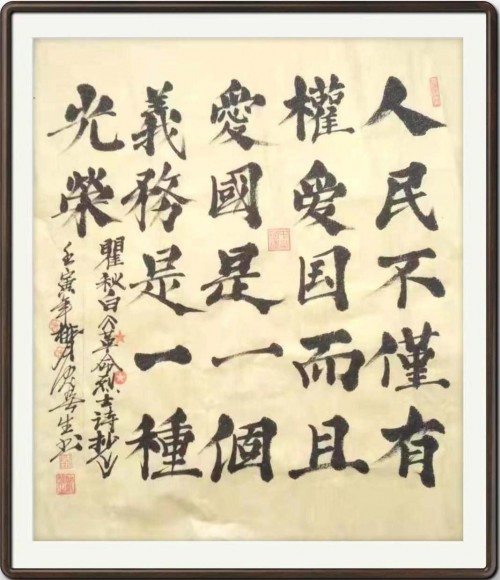 人民不僅有
權爱国而且
愛國是一個
義務是一種
光榮
瞿秋白公革命烈士詩抄
壬寅年
生书